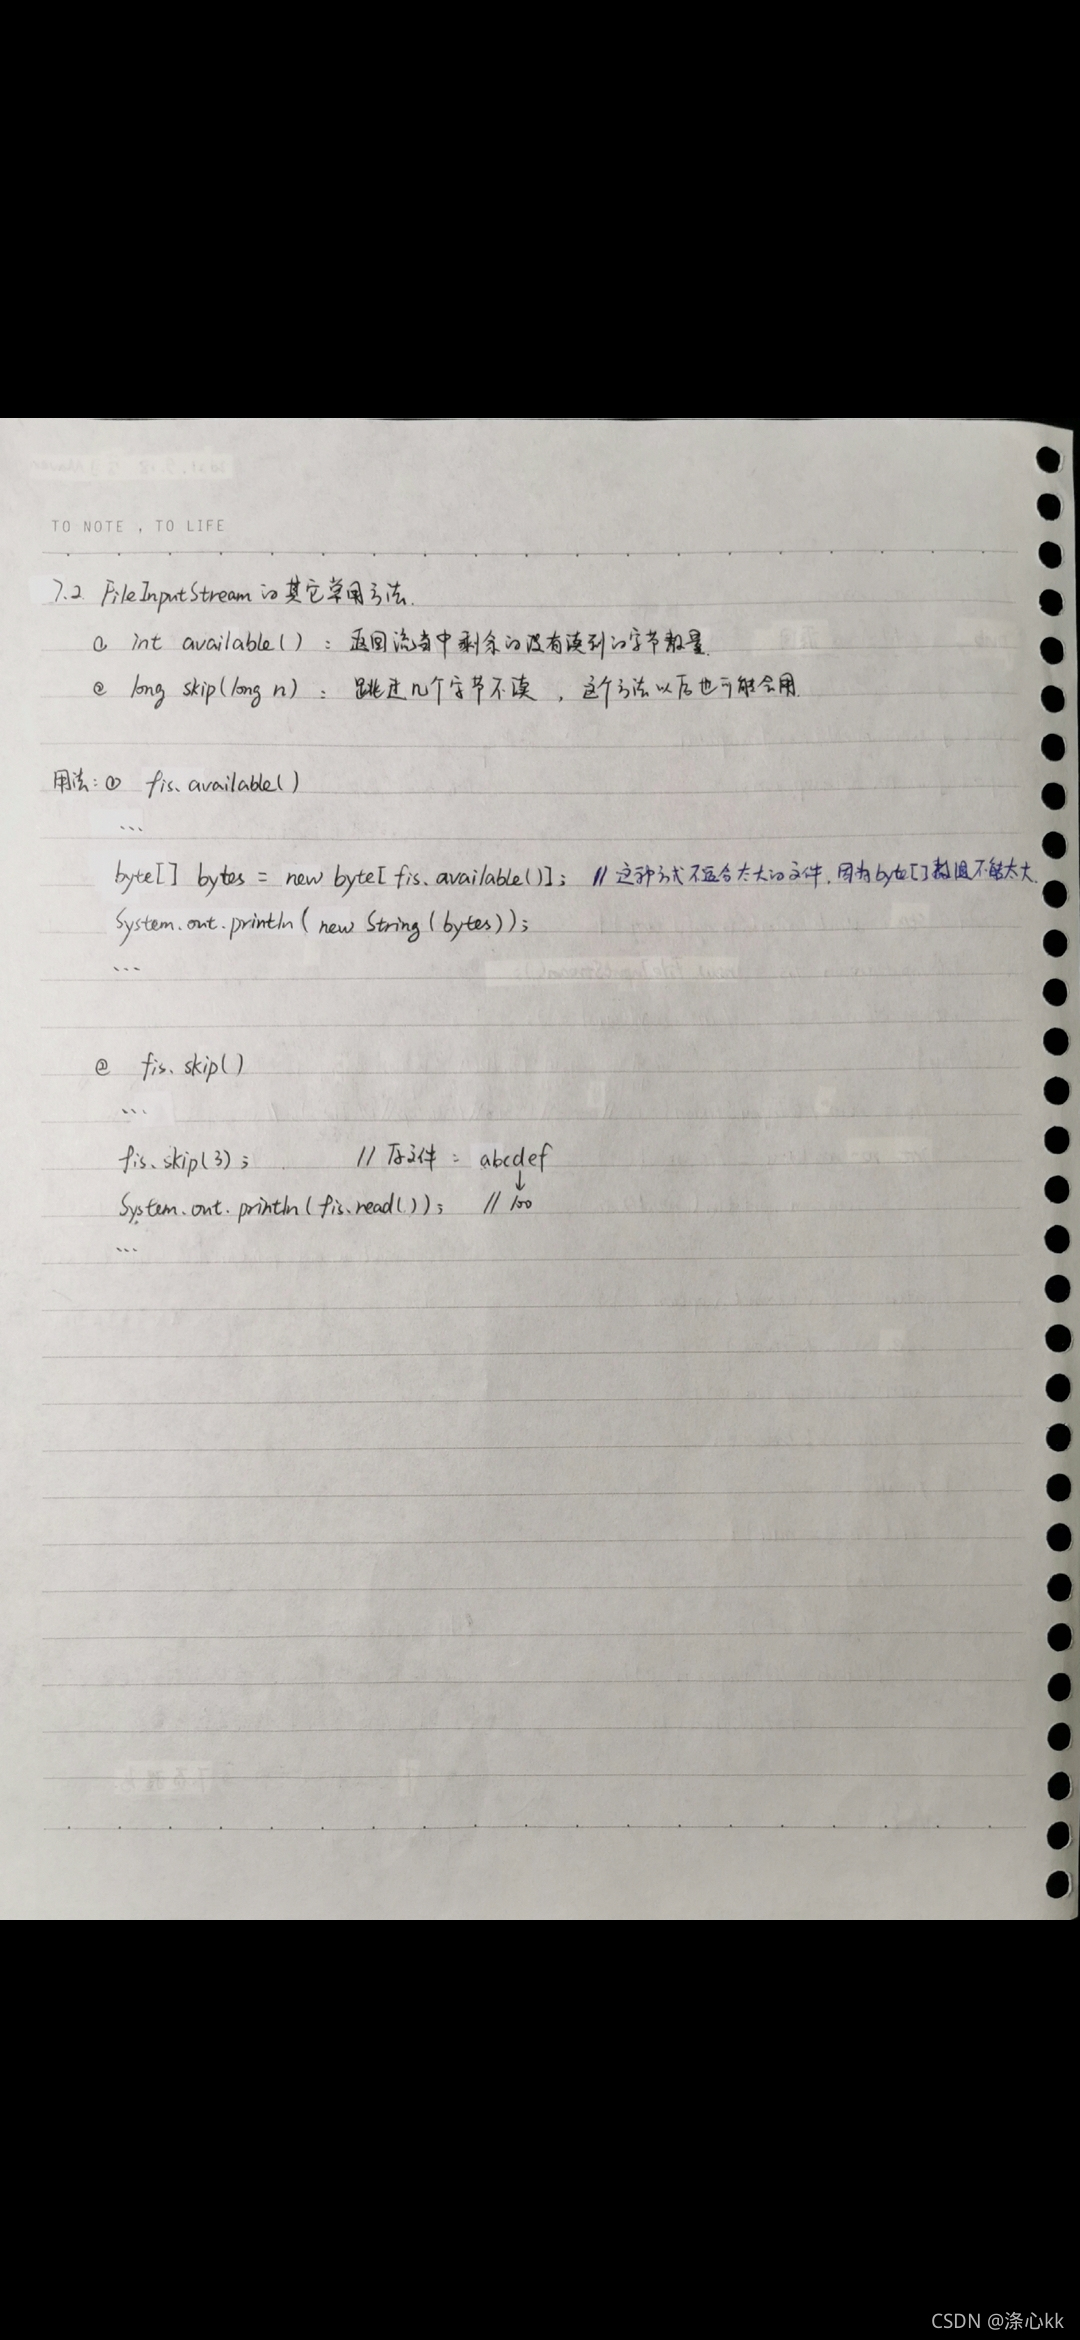 TO NOTE , TO LIFE
7.2 FileInputStream的其它常用方法.
① int available() : 返回流当中剩余的没有读到的字节数量.
② long skip(long n) : 跳过几个字节不读 , 这个方法以后也可能会用.
用法: ① fis.available()
...
byte[] bytes = new byte[fis.available()]; // 这种方式不适合太大的文件, 因为byte[]数组不能太大.
System.out.println(new String(bytes));
...
② fis.skip()
...
fis.skip(3); // 存文件 : abcdef
↓
System.out.println(fis.read()); // 100
...
CSDN @涤心kk